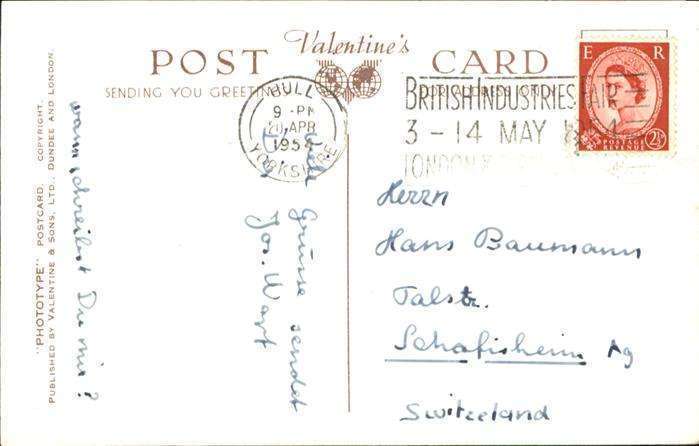 POST Valentine's CARD
SENDING YOU GREETIN
FOR ADDRESS ONLY
HULL
9 - PM
APR
YORKSHIRE
BRITISH INDUSTRIES FAIR
3 - 14 MAY
LONDON
E R
POSTAGE
REVENUE
2½
"PHOTOTYPE" POSTCARD. COPYRIGHT.
PUBLISHED BY VALENTINE & SONS, LTD., DUNDEE AND LONDON.
wann schreibst Du mir?
Grüsse sendet
Jos.
Herrn
Hans Baumann
Talstr.
Schafisheim Ag
Switzerland